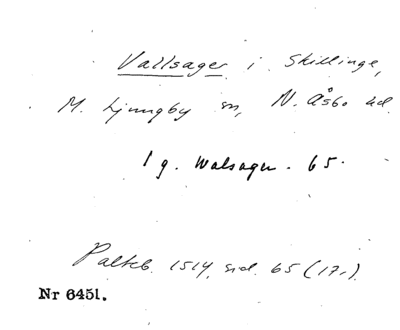 Vallsager i Skillinge,
M. Ljungby sn, N. Åsbo hd.
1 g. Walsager. 65.
Palteb. 1514, sid. 65 (17.)
Nr 6451.